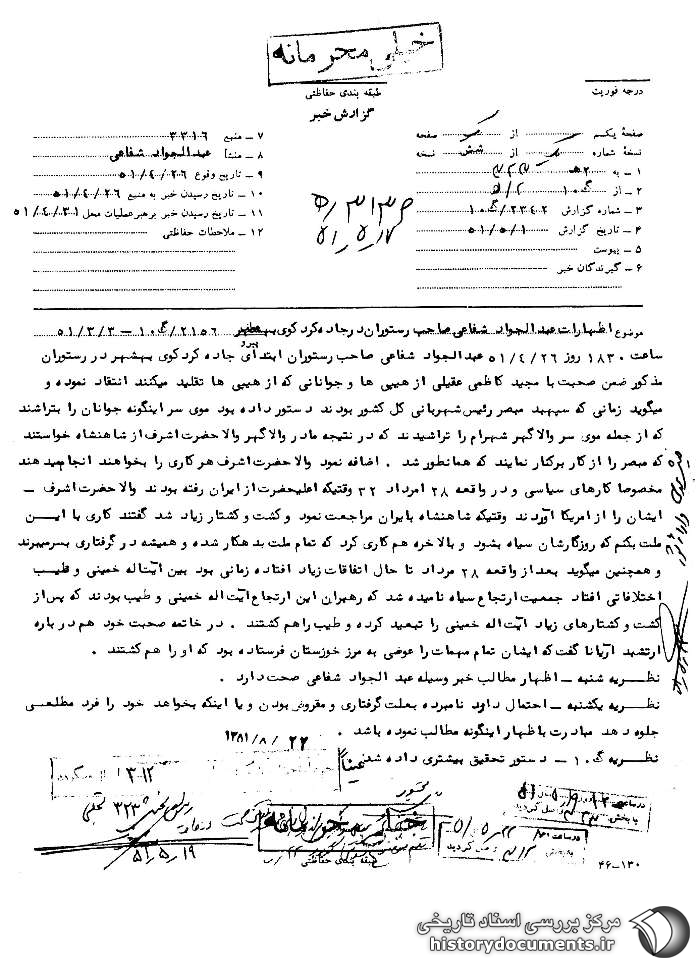 خیلی محرمانه
طبقه بندی حفاظتی
درجه فوریت
گزارش خبر
صفحهٔ یکم از صفحه
نسخهٔ شماره از شش نسخه
۱ – به
۲ – از گ۱۰
۳ – شماره گزارش ۲۳۴۲/گ۱۰
۴ – تاریخ گزارش ۵۱/۵/۱
۵ – پیوست
۶ – گیرندگان خبر
۷ – منبع ۳۳۱۶
۸ – منشأ عبدالجواد شفاعی
۹ – تاریخ وقوع ۵۱/۴/۲۶
۱۰ – تاریخ رسیدن خبر به منبع ۵۱/۴/۲۶
۱۱ – تاریخ رسیدن خبر برهبر عملیات محل ۵۱/۴/۳۱
۱۲ – ملاحظات حفاظتی
موضوع اظهارات عبدالجواد شفاعی صاحب رستوران در جاده کردکوی بهشهر
پیرو ۲۱۵۶/گ۱۰ – ۵۱/۳/۳
ساعت ۱۸۳۰ روز ۵۱/۴/۲۶ عبدالجواد شفاعی صاحب رستوران ابتدای جاده کردکوی بهشهر در رستوران
مذکور ضمن صحبت با مجید کاظمی عقیلی از هیپی ها و جوانانی که از هیپی ها تقلید میکنند انتقاد نموده و
میگوید زمانی که سپهبد مبصر رئیس شهربانی کل کشور بودند دستور داده بود موی سر اینگونه جوانان را بتراشند
که از جمله موی سر والا گهر شهرام را تراشیدند که در نتیجه مادر والا گهر والا حضرت اشرف از شاهنشاه خواستند
که مبصر را از کار برکنار نمایند که همانطور شد . اضافه نمود والا حضرت اشرف هر کاری را بخواهند انجام میدهند
مخصوصا کارهای سیاسی و در واقعه ۲۸ امرداد ۳۲ وقتیکه اعلیحضرت از ایران رفته بودند والا حضرت اشرف –
ایشان را از امریکا آوردند وقتیکه شاهنشاه بایران مراجعت نمود و کشت و کشتار زیاد شد گفتند کاری با ایـن
ملت بکنم که روزگارشان سیاه بشود و بالاخره هم کاری کرد که تمام ملت بدهکار شده و همیشه در گرفتاری بسر میبرند
و همچنین میگوید بعد از واقعه ۲۸ مرداد تا حال اتفاقات زیاد افتاده زمانی بود بین آیت اله خمینی و طیـب
اختلافاتی افتاد جمعیت ارتجاع سیاه نامیده شد که رهبران این ارتجاع آیت اله خمینی و طیب بودند که پس از
کشت و کشتارهای زیاد آیت اله خمینی را تبعید کرده و طیب را هم کشتند . در خاتمه صحبت خود هم در باره
ارتشبد آریانا گفت که ایشان تمام مهمات را عوضی به مرز خوزستان فرستاده بود که او را هم کشتند .
نظریه شنبه – اظهار مطالب خبر وسیله عبدالجواد شفاعی صحت دارد .
نظریه یکشنبه – احتمال دارد نامبرده بعلت گرفتاری و مقروض بودن و یا اینکه بخواهد خود را فرد مطلعـی
جلوه دهد مبادرت باظهار اینگونه مطالب نموده باشد .
نظریه گ۱۰ – دستور تحقیق بیشتری داده شد
۱۳۸۱/۸/۲۲
خیلی محرمانه
طبقه بندی حفاظتی
۵۱/۵/۱۹
در ساعت
به بخش
وصل گردید
۴۶–۱۳۰
مرکز بررسی اسناد تاریخی
historydocuments.ir